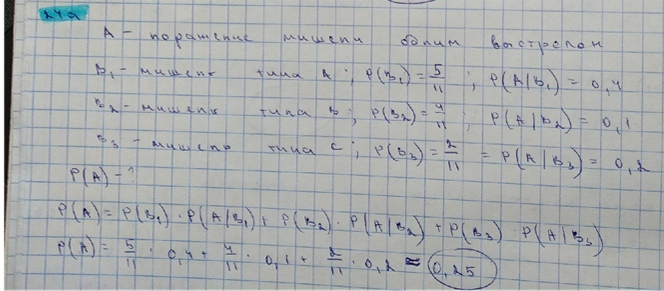 24а
A - поражение мишени одним выстрелом
B₁ - мишень типа A; P(B₁) = 5/11; P(A|B₁) = 0,4
B₂ - мишень типа B; P(B₂) = 4/11; P(A|B₂) = 0,1
B₃ - мишень типа C; P(B₃) = 2/11 = P(A|B₃) = 0,2
P(A) - ?
P(A) = P(B₁) · P(A|B₁) + P(B₂) · P(A|B₂) + P(B₃) · P(A|B₃)
P(A) = 5/11 · 0,4 + 4/11 · 0,1 + 2/11 · 0,2 ≈ 0,25